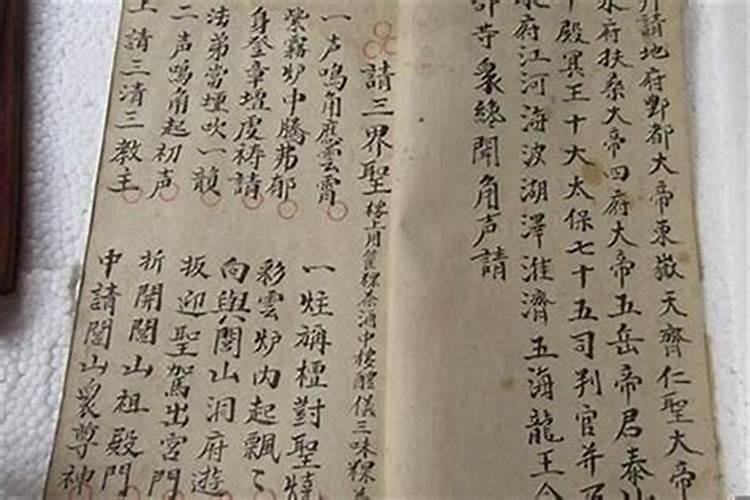 拜請地府酆都大帝東嶽天齊仁聖大帝
水府扶桑大帝四府大帝五岳帝君泰山
十殿冥王十大太保七十五司判官并及
水府江河海波湖澤淮濟五海龍王
部寺衆總聞角声請
請三界聖
一声鳴角應雲霄
紫霧炉中騰弗郁
身登章壇虔禱請
法弟當壇吹一韻
二声鳴角起初声
上請三清三教主
一炷稱檀對聖燒
彩雲炉内起飄々
向與閭山洞府遊
扳迎聖駕出宮門
折開閭山祖殿門
申請閭山衆尊神